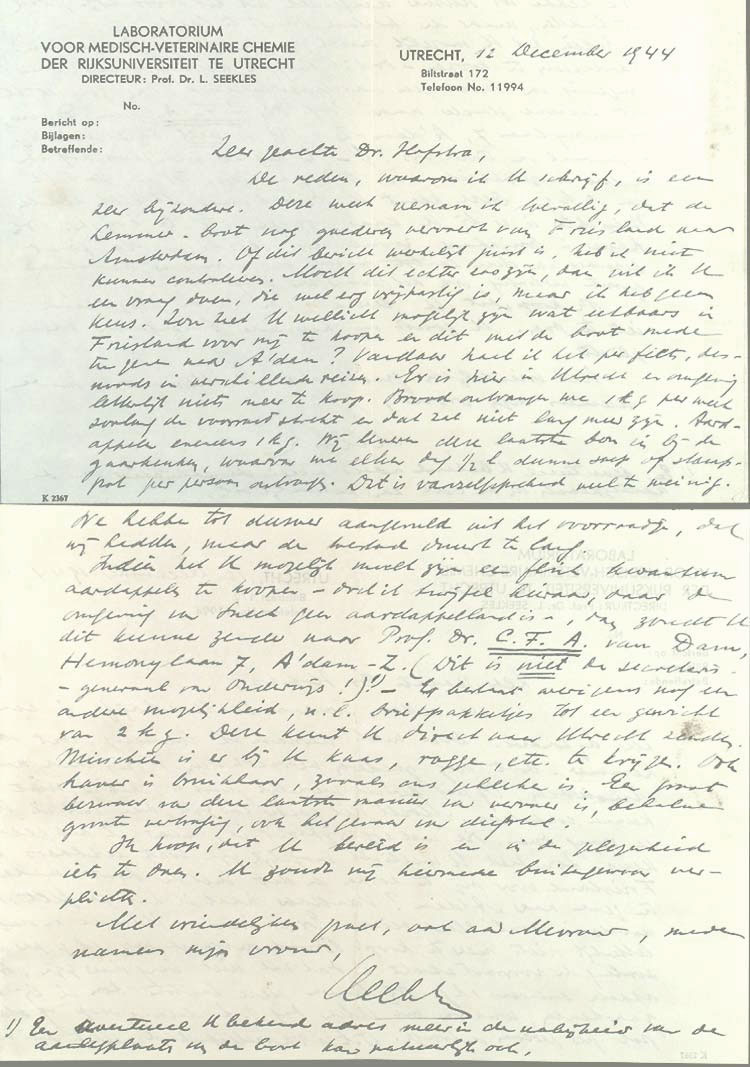 LABORATORIUM
VOOR MEDISCH-VETERINAIRE CHEMIE
DER RIJKSUNIVERSITEIT TE UTRECHT
DIRECTEUR: Prof. Dr. L. SEEKLES
UTRECHT, 12 December 1944
Biltstraat 172
Telefoon No. 11994
No.
Bericht op:
Bijlagen:
Betreffende:
Zeer geachte Dr. Hofstra,
De reden, waarom ik U schrijf, is een
zeer bijzondere. Deze week vernam ik toevallig, dat de
Lemmer-boot nog goederen vervoert van Friesland naar
Amsterdam. Of dit bericht werkelijk juist is, heb ik niet
kunnen controleren. Mocht dit echter zoo zijn, dan wil ik U
een vraag doen, die wel erg vrijpostig is, maar ik heb geen
keus. Zou het U wellicht mogelijk zijn wat eetbaars in
Friesland voor mij te koopen en dit met de boot mede
te geven naar A'dam? Vandaar haal ik het per fiets, des-
noods in verschillende reizen. Er is hier in Utrecht en omgeving
letterlijk niets meer te koop. Brood ontvangen we 1 kg per week
zoolang de voorraad strekt en dat zal niet lang meer zijn. Aard-
appelen eveneens 1 kg. Wij leveren deze laatste bon in bij de
gaarkeuken, waarvan we elken dag ½ l dunne soep of stamp-
pot per persoon ontvangen. Dit is vanzelfsprekend veel te weinig.
K 2367
We hebben tot dusver aangevuld uit het voorraadje, dat
wij hadden, maar de toestand duurt te lang.
Indien het U mogelijk mocht zijn een flink kwantum
aardappelen te koopen - doch ik twijfel hieraan, daar de
omgeving van Sneek geen aardappelland is -, dan zoudt U
dit kunnen zenden naar Prof. Dr. C. F. A. van Dam,
Hemonylaan 7, A'dam-Z. (Dit is niet de secretaris
-generaal van Onderwijs!)¹) - Er bestaat overigens nog een
andere mogelijkheid, n.l. briefpakketjes tot een gewicht
van 2 kg. Deze kunt U direct naar Utrecht zenden.
Misschien is er bij U kaas, rogge, etc. te krijgen. Ook
haver is bruikbaar, zooals ons gebleken is. Een groot
bezwaar van deze laatste manier van vervoer is, behalve
groote vertraging, ook het gevaar van diefstal.
Ik hoop, dat U bereid is en in de gelegenheid
iets te doen. U zoudt mij hiermede buitengewoon ver-
plichten.
Met vriendelijken groet, ook aan Mevrouw, mede
namens mijn vrouw,
Seekles
1) Een eventueel U bekend adres meer in de nabijheid van de
aanlegplaats van de boot kan natuurlijk ook.
K 2367